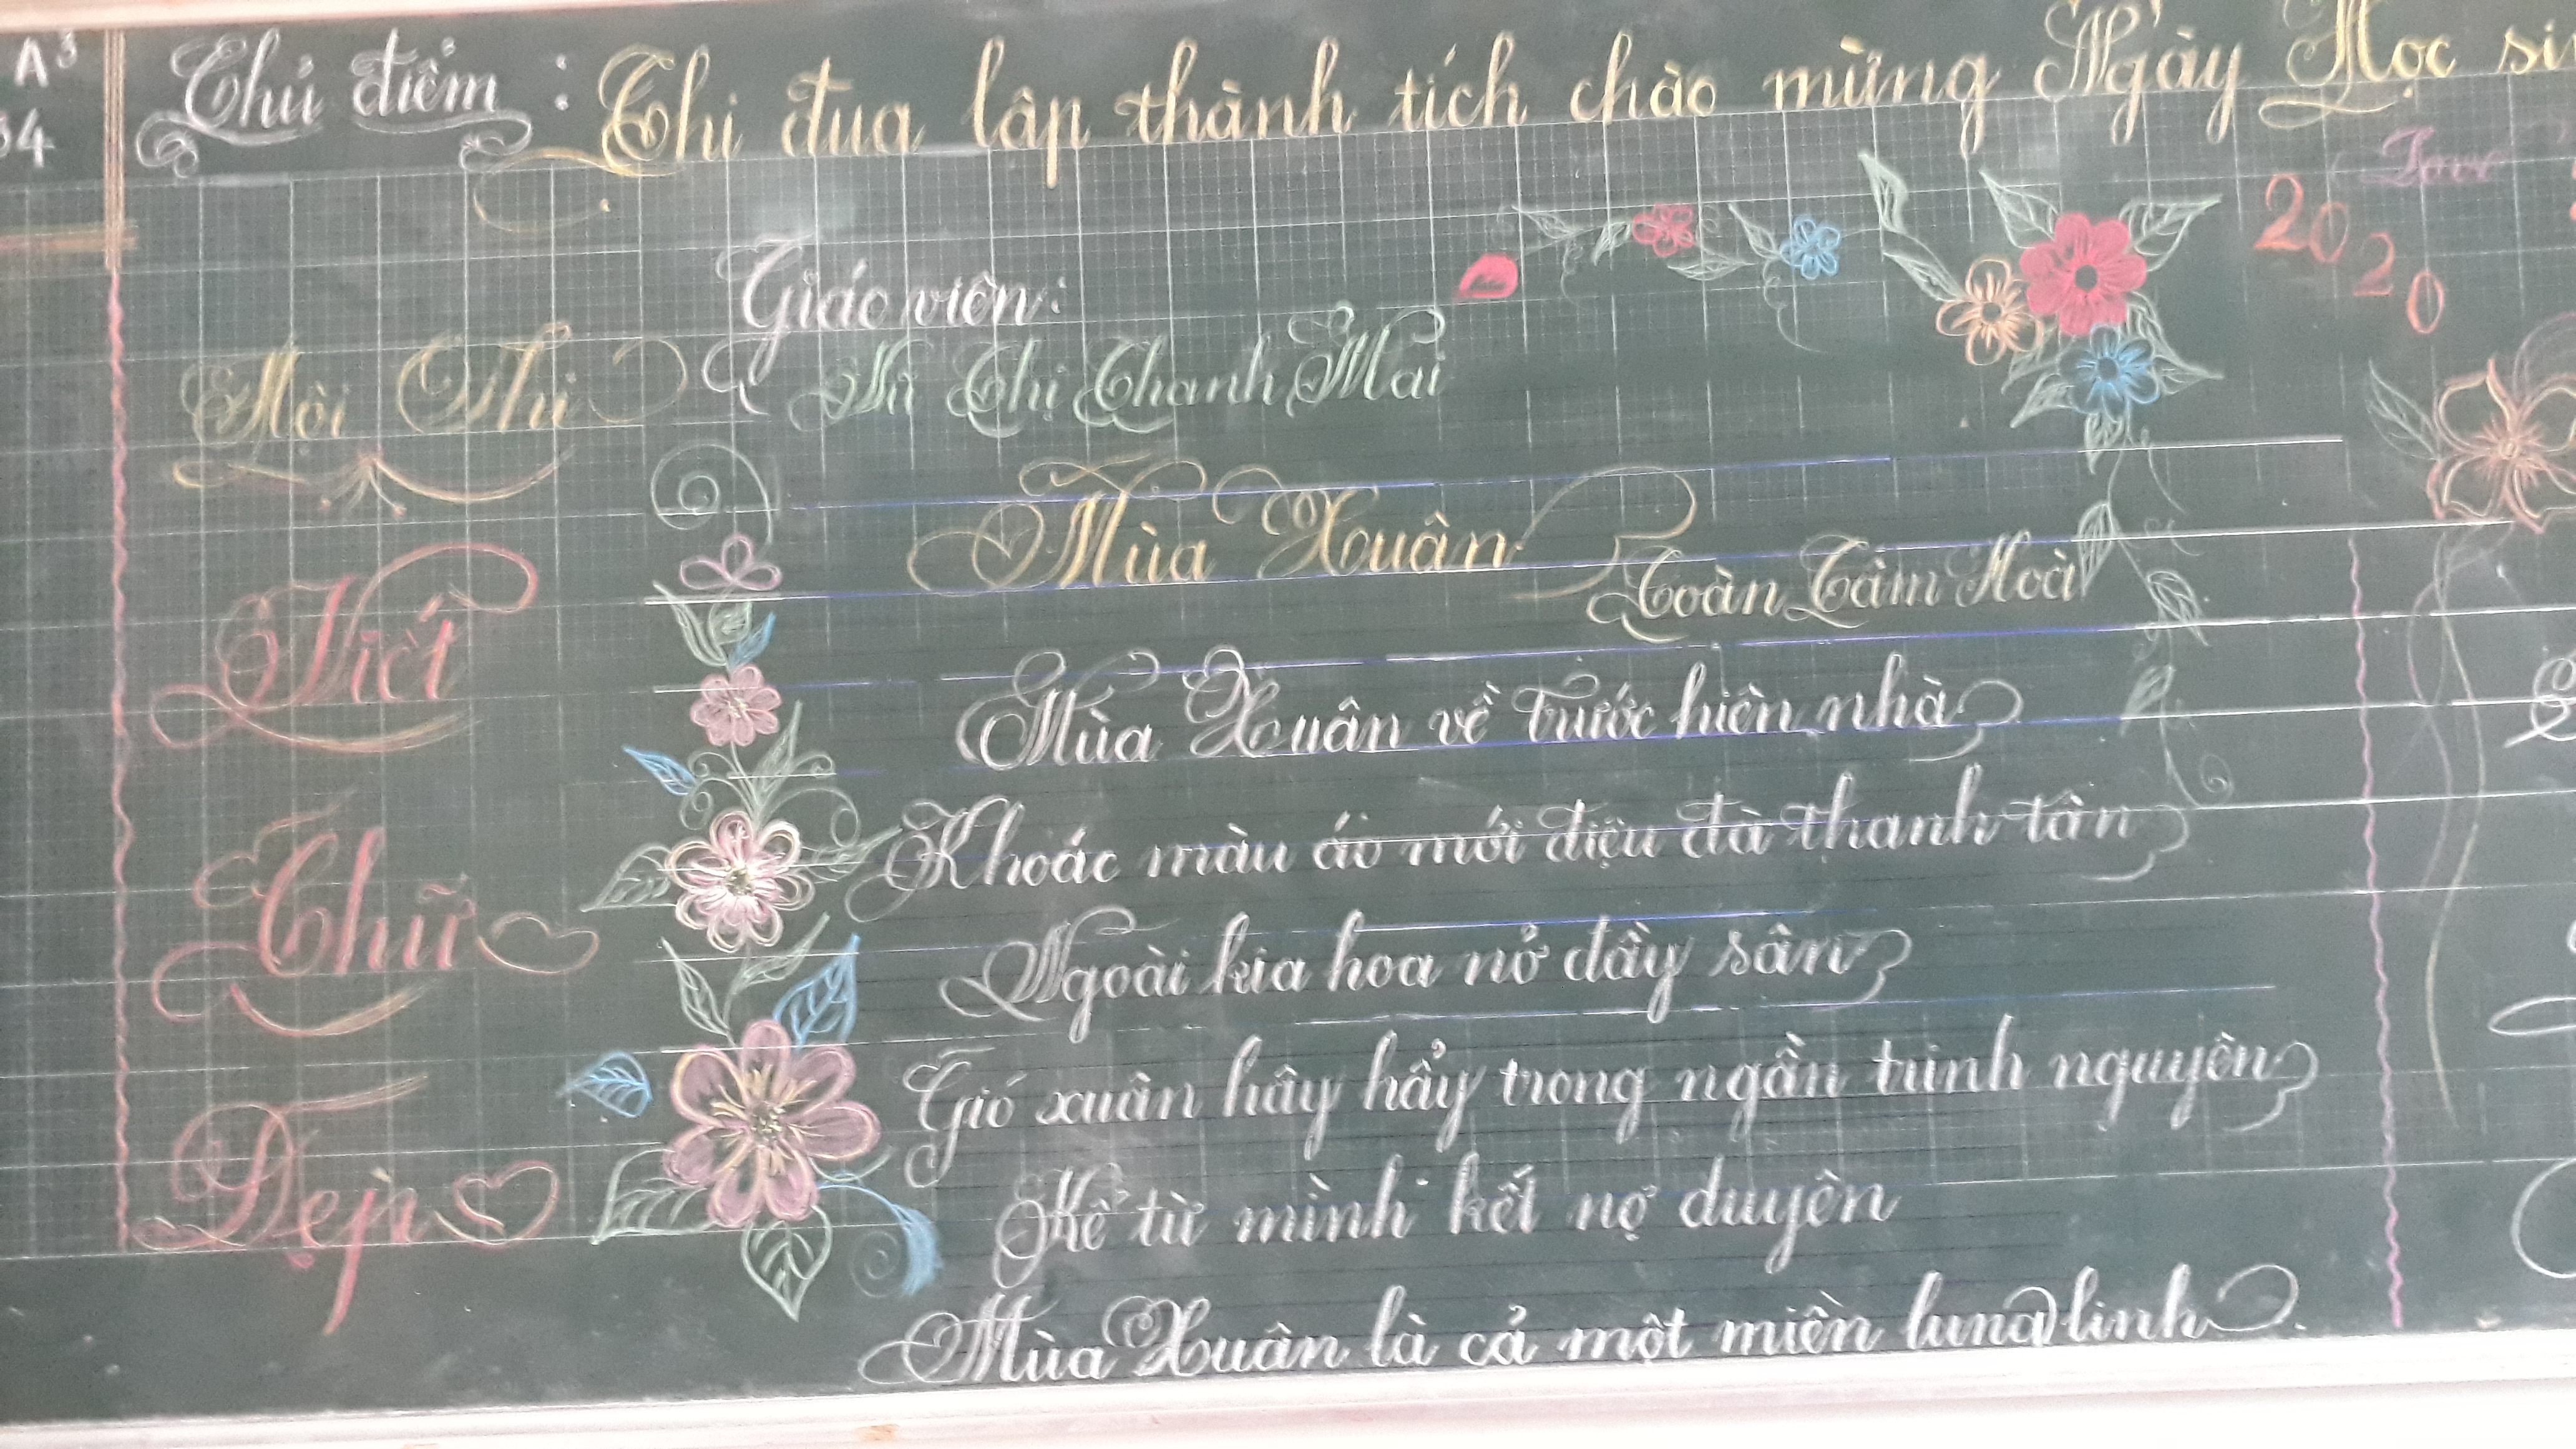 A3
34
Chủ điểm : Thi đua lập thành tích chào mừng Ngày Học si
Love
2020
Giáo viên:
Thị Thanh Mai
Hội Thi
Viết
Chữ
Đẹp
Mùa Xuân
Toàn Tâm Hoà
Mùa Xuân về trước hiên nhà
Khoác màu áo mới điệu đà thanh tân
Ngoài kia hoa nở đầy sân
Gió xuân hây hẩy trong ngần trinh nguyên
Kể từ mình kết nợ duyên
Mùa Xuân là cả một miền lung linh